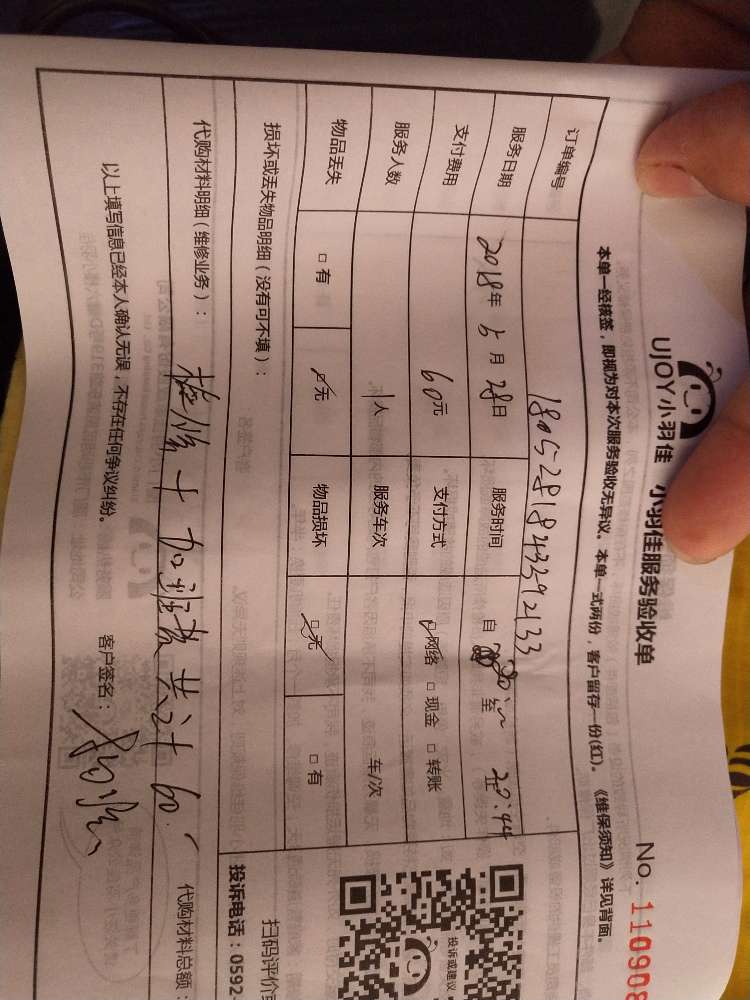 UJOY小羽佳 小羽佳服务验收单
No. 110908
本单一经核签，即视为对本次服务验收无异议。本单一式两份，客户留存一份(红)。《维保须知》详见背面。
订单编号 180528184333592133
服务日期 2018年 5月 28日 服务时间 自 至 20:44
支付费用 60元 支付方式 □网络 □现金 □转账
服务人数 1人 服务车次 车/次
物品丢失 □有 □无 物品损坏 □无 □有
损坏或丢失物品明细（没有可不填）：
代购材料明细（维修业务）： 检修+加班费共计60. 代购材料总额：
以上填写信息已经本人确认无误，不存在任何争议纠纷。 客户签名：
投诉或建议
扫码评价
投诉电话：0592-